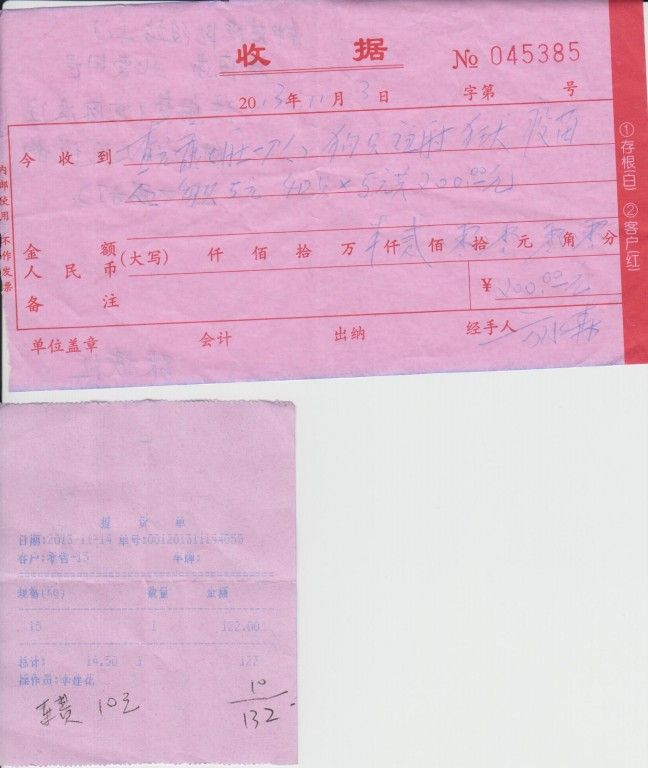 收 据
№ 045385
2013年11月3日 字第 号
今收到 狗只注射 疫苗
40只×5元 200.00元
金额(大写) 仟 佰 拾 万 仟贰佰零拾零元零角零分
人民币
备注 ¥200.00元
单位盖章 会计 出纳 经手人
①存根(白) ②客户(红)
内部使用 不作发票
提 货 单
日期:2013-11-14 单号:001201311144055
客户:零售-15 车牌:
规格(KG) 数量 金额
15 1 122.00
总计: 14.50 1 122
操作员:李建花
车费 10元 10
132